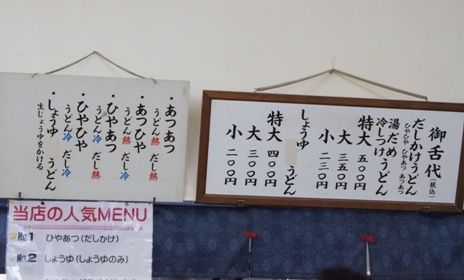 ・あつあつ
うどん熱 だし熱
・あつひや
うどん熱 だし冷
・ひやあつ
うどん冷 だし熱
・ひやひや
うどん冷 だし冷
・しょうゆ うどん
生じょうゆをかける
御舌代(税込)
だしかけうどん
ひやひや ひやあつ あつあつ
冷しつけうどん
湯だめうどん
特大 五〇〇円
大 三五〇円
小 二三〇円
しょうゆ うどん
特大 四〇〇円
大 三〇〇円
小 二〇〇円
当店の人気MENU
No.1 ひやあつ(だしかけ)
No.2 しょうゆ(しょうゆのみ)